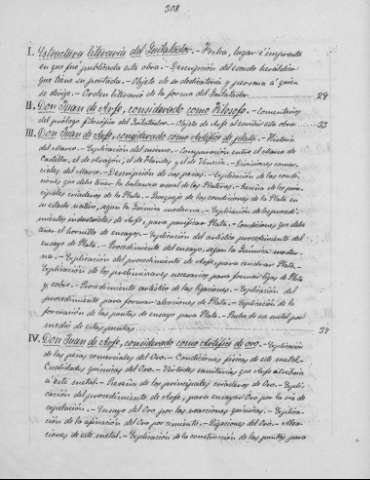 308
I. Estructura literaria del Quilatador. - Fecha, lugar é imprenta
en que fué publicada esta obra. - Descripción del escudo heráldico
que tiene su portada. - Objeto de su dedicatoria y persona á quien
se dirige. - Orden literario de la forma del Quilatador. 29
II. Don Juan de Arfe, considerado como Filósofo. - Comentarios
del prólogo filosófico del Quilatador. - Objeto de Arfe al escribir esta obra. 33
III. Don Juan de Arfe, considerado como Artífice de plata. - Historia
del Marco. - Explicación del mismo. - Comparación entre el Marco de
Castilla, el de Aragón, el de Flandes y el de Venecia. - Divisiones comer-
ciales del Marco. - Descripción de sus pesas. - Explicación de las condi-
ciones que debe tener la balanza usual de los Plateros. - Reseña de los prin-
cipales criaderos de la Plata. - Lenguaje de las condiciones de la Plata en
su estado nativo, según la Química moderna. - Explicación de los procedi-
mientos industriales de Arfe, para purificar Plata. - Condiciones que debe
tener el hornillo de ensayo. - Explicación del artístico procedimiento del
ensayo de Plata. - Procedimiento del ensayo, según la Química moder-
na. - Explicación del procedimiento de Arfe para cendrar Plata. -
Explicación de los preliminares necesarios para formar ligas de Plata
y cobre. - Procedimiento artístico de las ligaciones. - Explicación del
procedimiento para formar aleaciones de Plata. - Explicación de la
formación de las puntas de ensayo para Plata. - Prueba de ese metal por
medio de estas puntas 54
IV. Don Juan de Arfe, considerado como Artífice de oro. - Explicación
de las pesas comerciales del Oro. - Condiciones físicas de este metal. -
Cualidades químicas del Oro. - Virtudes sanitarias que Arfe atribuía
á este metal. - Reseña de los principales criaderos de Oro. - Expli-
cación del procedimiento de Arfe, para ensayar Oro por la vía de
copelación. - Ensayo del Oro por las reacciones químicas. - Explica-
ción de la afinación del Oro por cimiento. - Ligaciones del Oro. - Alea-
ciones de este metal. - Explicación de la construcción de las puntas para